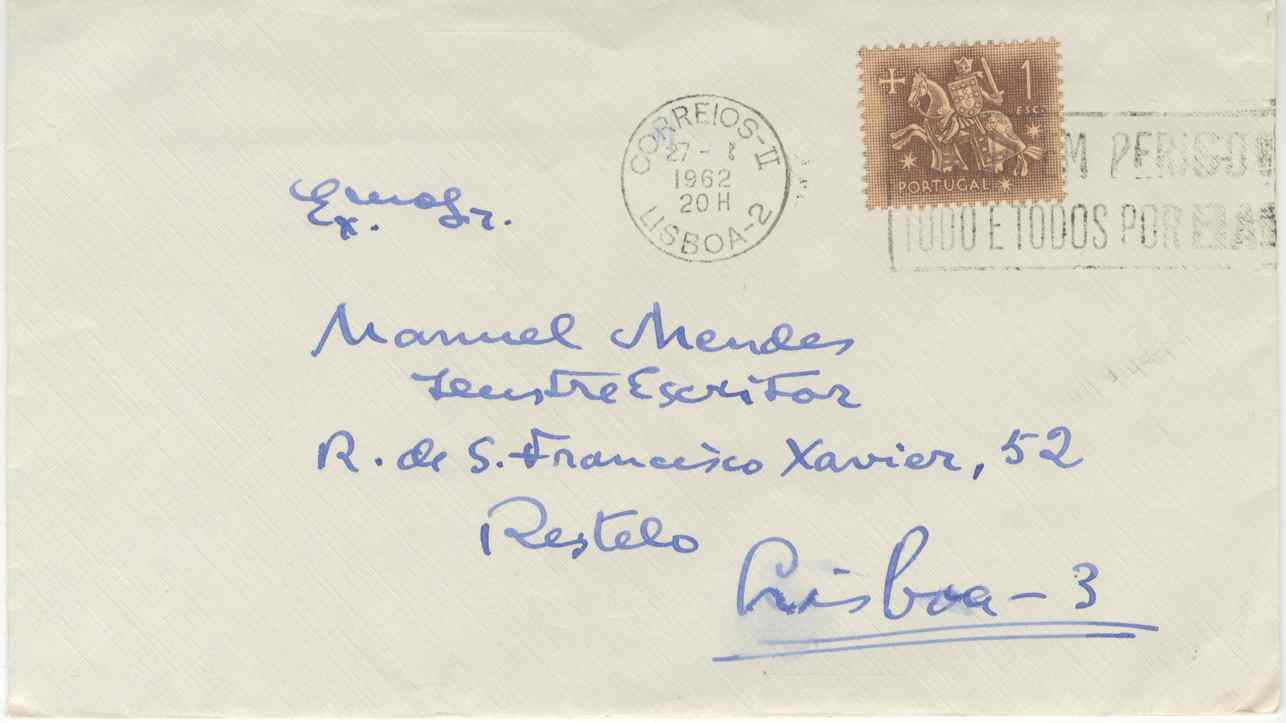 CORREIOS-II
27 - I
1962
20 H
LISBOA-2
1
ESC.
PORTUGAL
M PERIGO
TUDO E TODOS POR ELA
Exmo Sr.
Manuel Mendes
Ilustre Escritor
R. de S. Francisco Xavier, 52
Restelo
Lisboa - 3